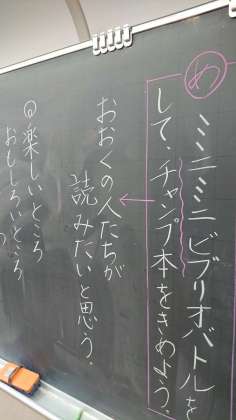 め
ミニミニビブリオバトルを
して、チャンプ本をきめよう。
おおくの人たちが
読みたいと思う。
◎楽しいところ
おもしろいところ